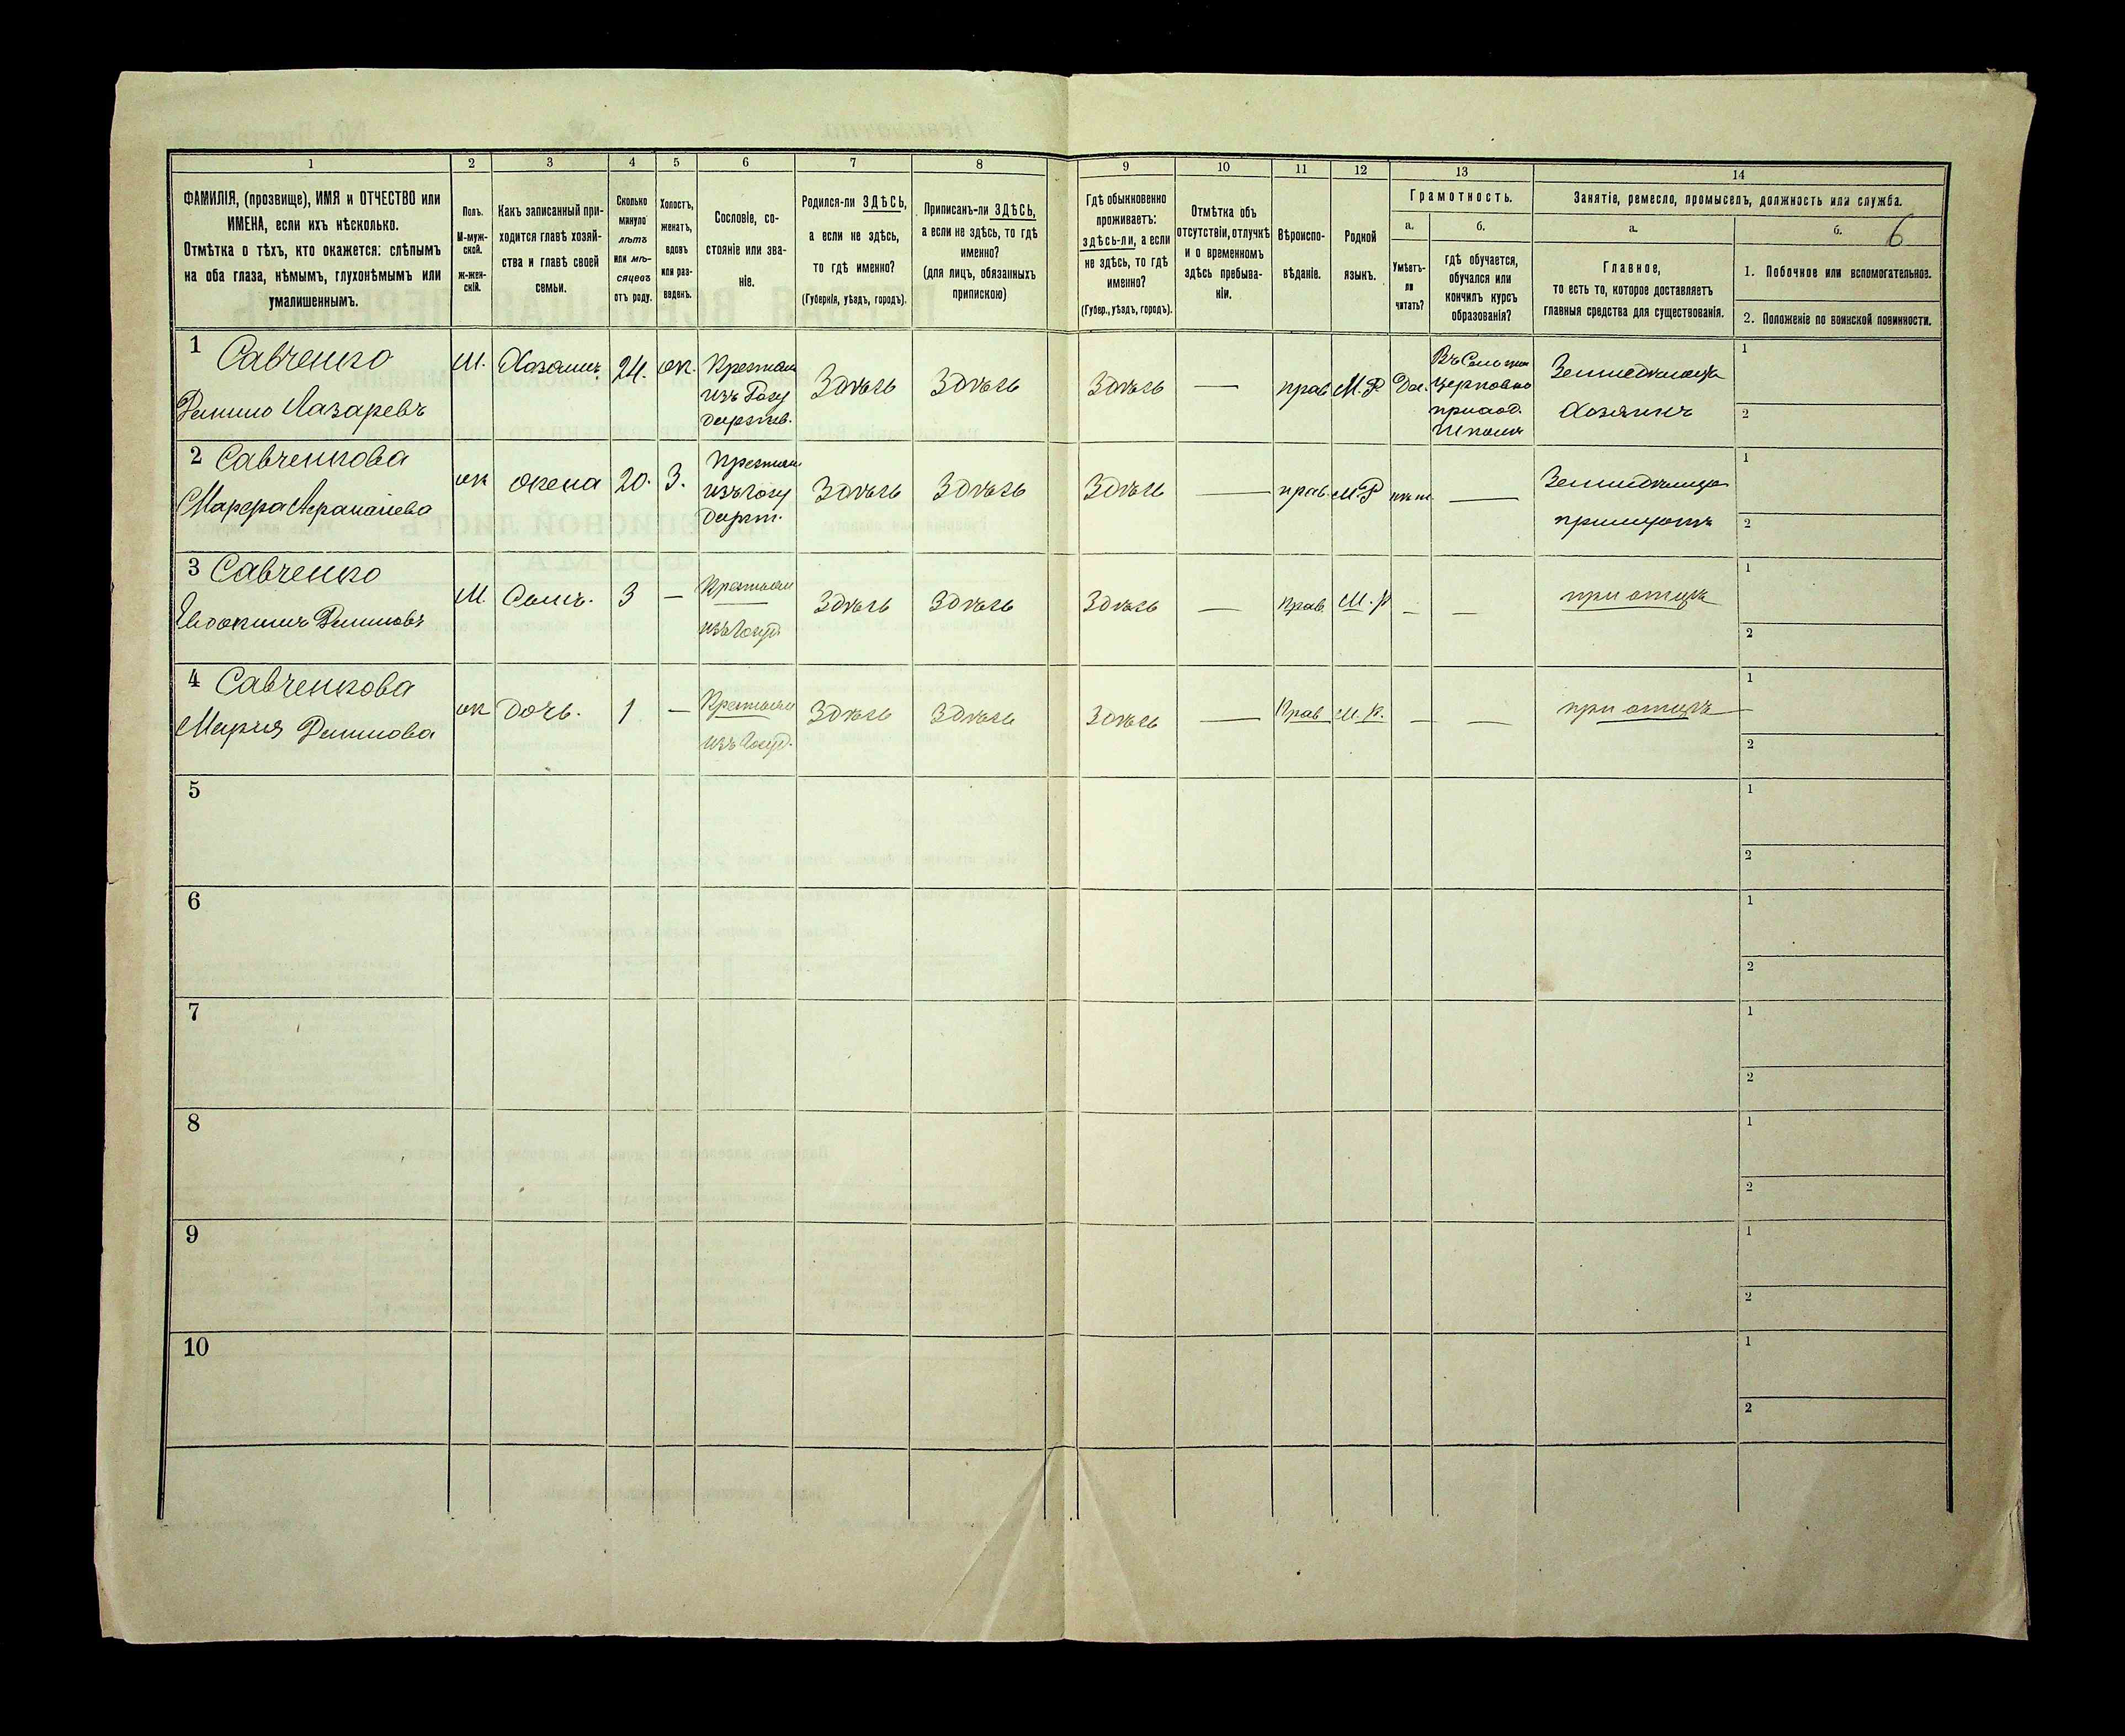 1 2 3 4 5 6 7 8 9 10 11 12 13 14
ФАМИЛІЯ, (прозвище), ИМЯ и ОТЧЕСТВО или
ИМЕНА, если ихъ нѣсколько.
Отмѣтка о тѣхъ, кто окажется: слѣпымъ
на оба глаза, нѣмымъ, глухонѣмымъ или
умалишеннымъ.
Полъ.
М-муж-
ской.
ж-жен-
скій.
Какъ записанный при-
ходится главѣ хозяй-
ства и главѣ своей
семьи.
Сколько
минуло
лѣтъ
или мѣ-
сяцевъ
отъ роду.
Холостъ,
женатъ,
вдовъ
или раз-
веденъ.
Сословіе, со-
стояніе или зва-
ніе.
Родился-ли ЗДѢСЬ,
а если не здѣсь,
то гдѣ именно?
(Губернія, уѣздъ, городъ).
Приписанъ-ли ЗДѢСЬ,
а если не здѣсь, то гдѣ
именно?
(для лицъ, обязанныхъ
припискою)
Гдѣ обыкновенно
проживаетъ:
здѣсь-ли, а если
не здѣсь, то гдѣ
именно?
(Губер., уѣздъ, городъ).
Отмѣтка объ
отсутствіи, отлучкѣ
и о временномъ
здѣсь пребыва-
ніи.
Вѣроиспо-
вѣданіе.
Родной
языкъ.
Грамотность.
а.
Умѣетъ-
ли
читать?
б.
гдѣ обучается,
обучался или
кончилъ курсъ
образованія?
Занятіе, ремесло, промыселъ, должность или служба.
а.
Главное,
то есть то, которое доставляетъ
главныя средства для существованія.
б.
6
1. Побочное или вспомогательное.
2. Положеніе по воинской повинности.
1 Савченко
Лазаревъ
М. Хозяинъ 24. ж.
Крестьян
изъ Госу
дарств.
Здѣсь Здѣсь Здѣсь — прав М.Р. Да.
церковно
приход.
школѣ
Хозяинъ
1
2
2 Савченкова
ж жена 20. З.
Крестьян
изъ Госу
дарст.
Здѣсь Здѣсь Здѣсь — прав. М.Р. нѣт —
1
2
3 Савченко
М. Сынъ. 3 —
Крестьян
изъ Госуд.
Здѣсь Здѣсь Здѣсь — Прав М.Р — —
при отцѣ
1
2
4 Савченкова
Мария
ж дочь. 1 —
Крестьян
изъ Госуд.
Здѣсь Здѣсь Здѣсь — Прав М.Р. — —
при отцѣ
1
2
5
1
2
6
1
2
7
1
2
8
1
2
9
1
2
10
1
2